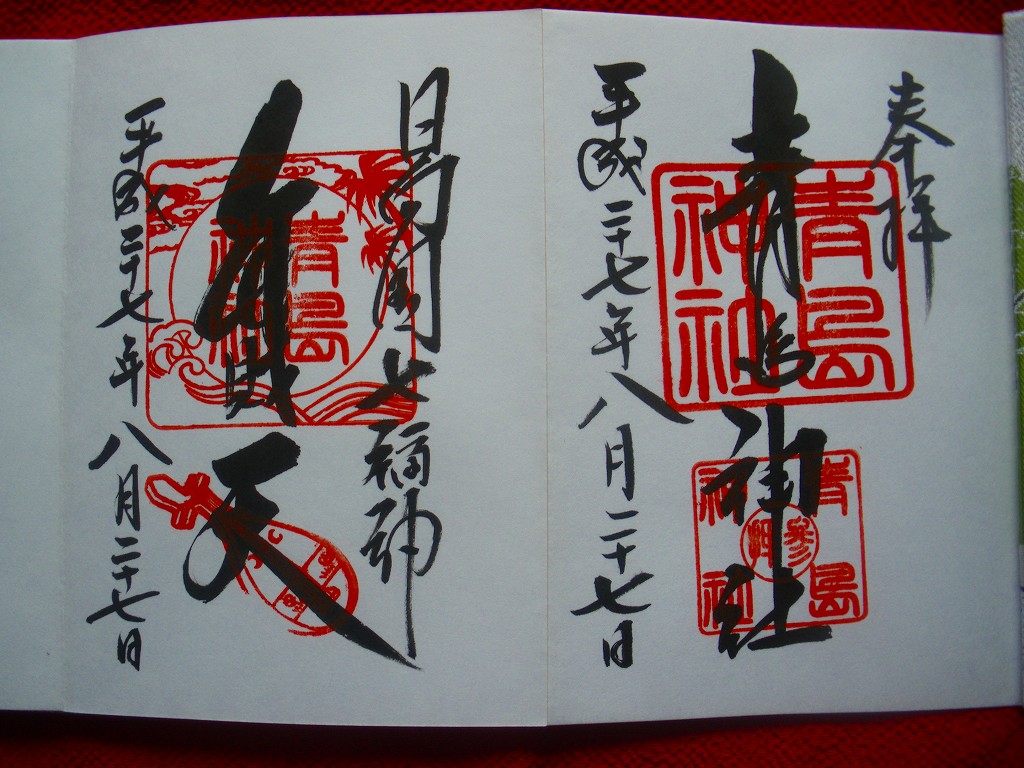 奉拝
青島神社
平成二十七年八月二十七日
青島
神社
青島
神社
日向国七福神
弁財天
平成二十七年八月二十七日
青島
神社